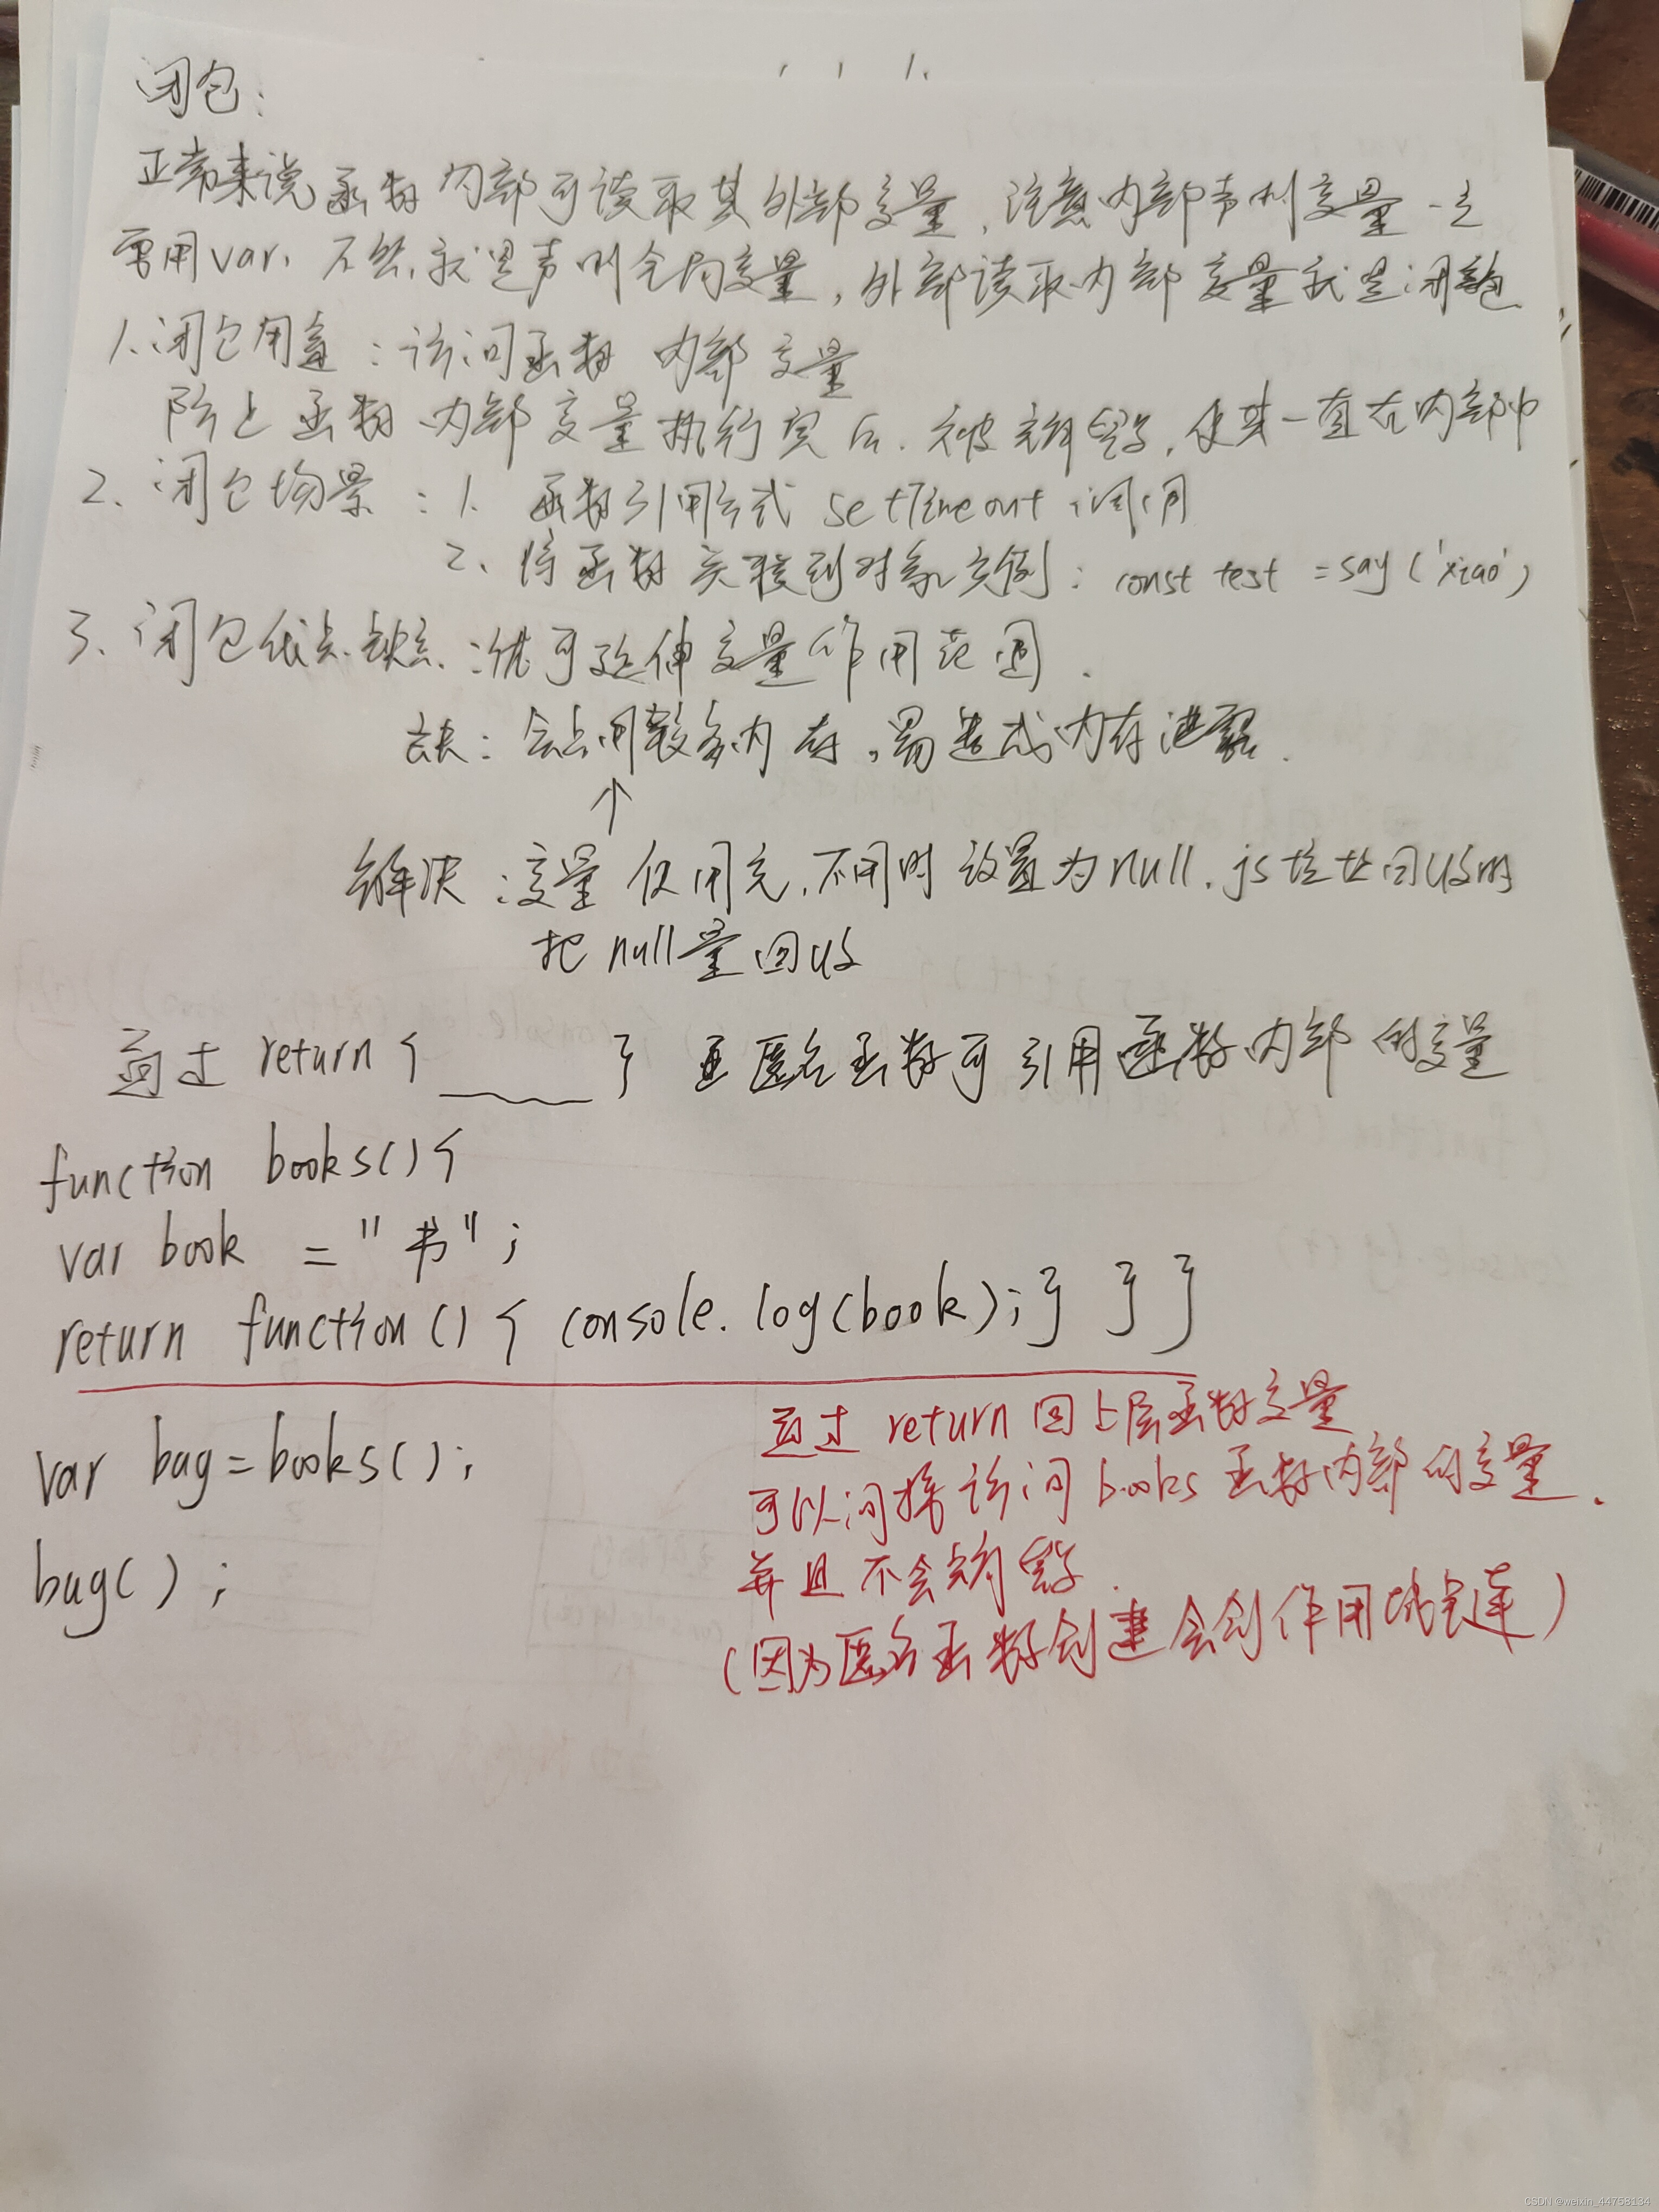 闭包:
正常来说函数内部可读取其外部变量,注意内部声明变量一定
要用var,不然,就是声明全局变量,外部读取内部变量就是闭包
1.闭包用途:访问函数 内部变量
防止函数内部变量执行完后,被销毁,使其一直在内部中
2、闭包场景:1、函数引用方式 setTimeout 调用
2、将函数关联到对象实例:const test =say('xiao')
3、闭包优点.缺点:优可延伸变量作用范围.
缺:会占用较多内存,易造成内存泄露.
↑
解决:变量使用完,不用时设置为null.js垃圾回收时
把null量回收
通过 return { } 匿名函数可引用函数内部的变量
function books(){
var book ="书";
return function(){ console.log(book);} } }
通过 return 回上层函数变量
var bag=books();
可以间接访问books函数内部的变量.
并且不会销毁.
bag();
(因为匿名函数创建会创作用域链)
CSDN @weixin_44758134